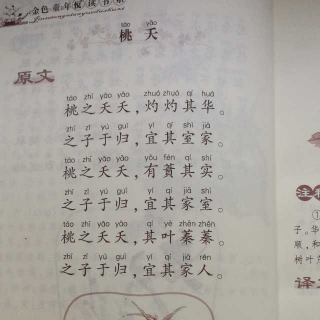 金色童年悦读书系
táo yāo
桃 夭
原文
táo zhī yāo yāo zhuó zhuó qí huá
桃之夭夭，灼灼其华。
zhī zǐ yú guī yí qí shì jiā
之子于归，宜其室家。
táo zhī yāo yāo yǒu fén qí shí
桃之夭夭，有蕡其实。
zhī zǐ yú guī yí qí jiā shì
之子于归，宜其家室。
táo zhī yāo yāo qí yè zhēn zhēn
桃之夭夭，其叶蓁蓁。
zhī zǐ yú guī yí qí jiā rén
之子于归，宜其家人。
注
①
子。华
顺，和
树叶
译